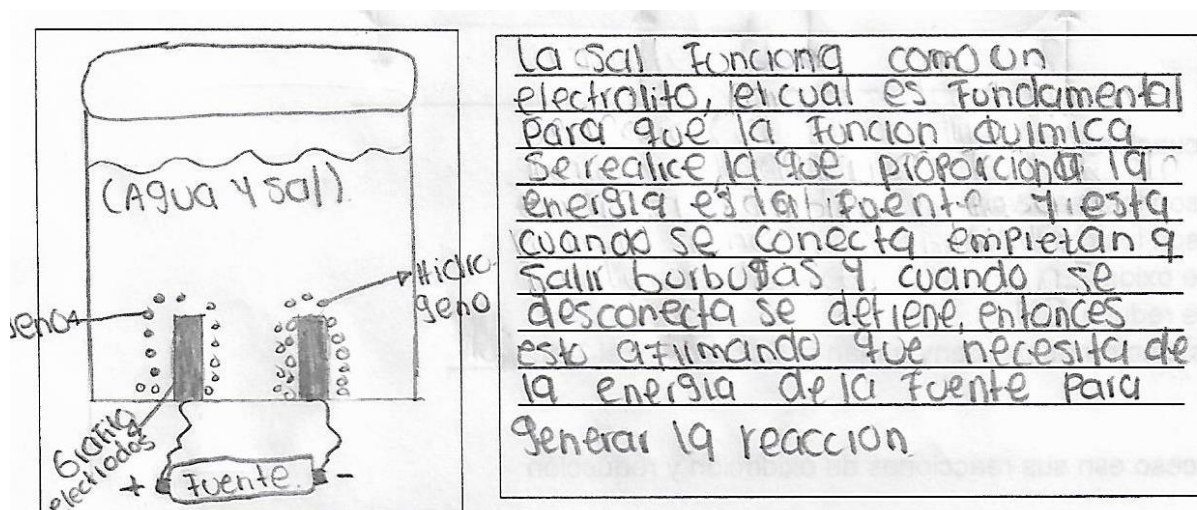 (Agua y sal)
Hidro-
geno
geno
Grafito
electrodos
+ Fuente. -
La sal Funciona como un
electrolito, el cual es Fundamental
Para que la Funcion Quimica
Se realice, la que proporciona la
energia es la Fuente y esta
cuando se conecta empiezan a
Salir burbujas y cuando se
desconecta se detiene, entonces
esto afilmando que necesita de
la energia de la Fuente Para
generar la reaccion